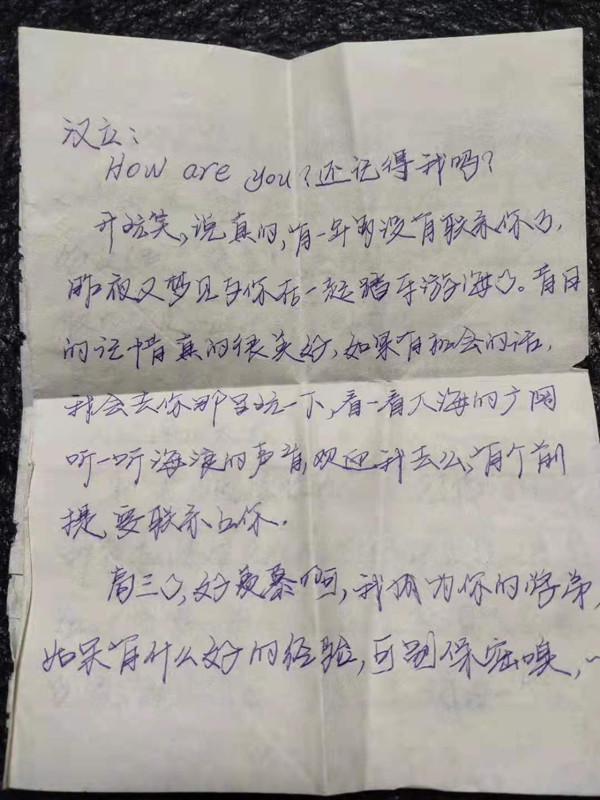 汉立：
How are you？还记得我吗？
开玩笑，说真的，有一年多没有联系你了，
昨夜又梦见与你在一起踏车游海口。昔日
的记忆真的很美好，如果有机会的话，
我会去你那里玩一下，看一看大海的广阔
听一听海浪的声音，欢迎我去么，有个前
提，要联系上你.
高三了，好羡慕啊，我成为你的学弟，
如果有什么好的经验，可别保密噢，～